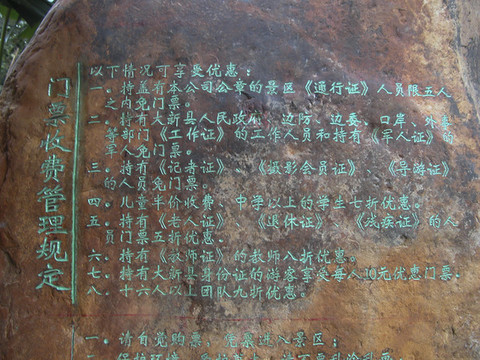 门票收费管理规定
以下情况可享受优惠：
一。持盖有本公司公章的景区《通行证》人员限五人
之内免门票。
二。持有大新县人民政府、边防、边委、口岸、外委
等部门《工作证》的工作人员和持有《军人证》的
军人免门票。
三。持有《记者证》、《摄影会员证》《导游证》
的人员免门票。
四。儿童半价收费、中学以上的学生七折优惠。
五。持有《老人证》《退休证》、《残疾证》的人
员门票五折优惠。
六。持有《教师证》的教师八折优惠。
七。持有《大新县身份证的游客享受每人10元优惠门票。
八。十六人以上团队九折优惠。
一。请自觉购票，凭票进入景区；